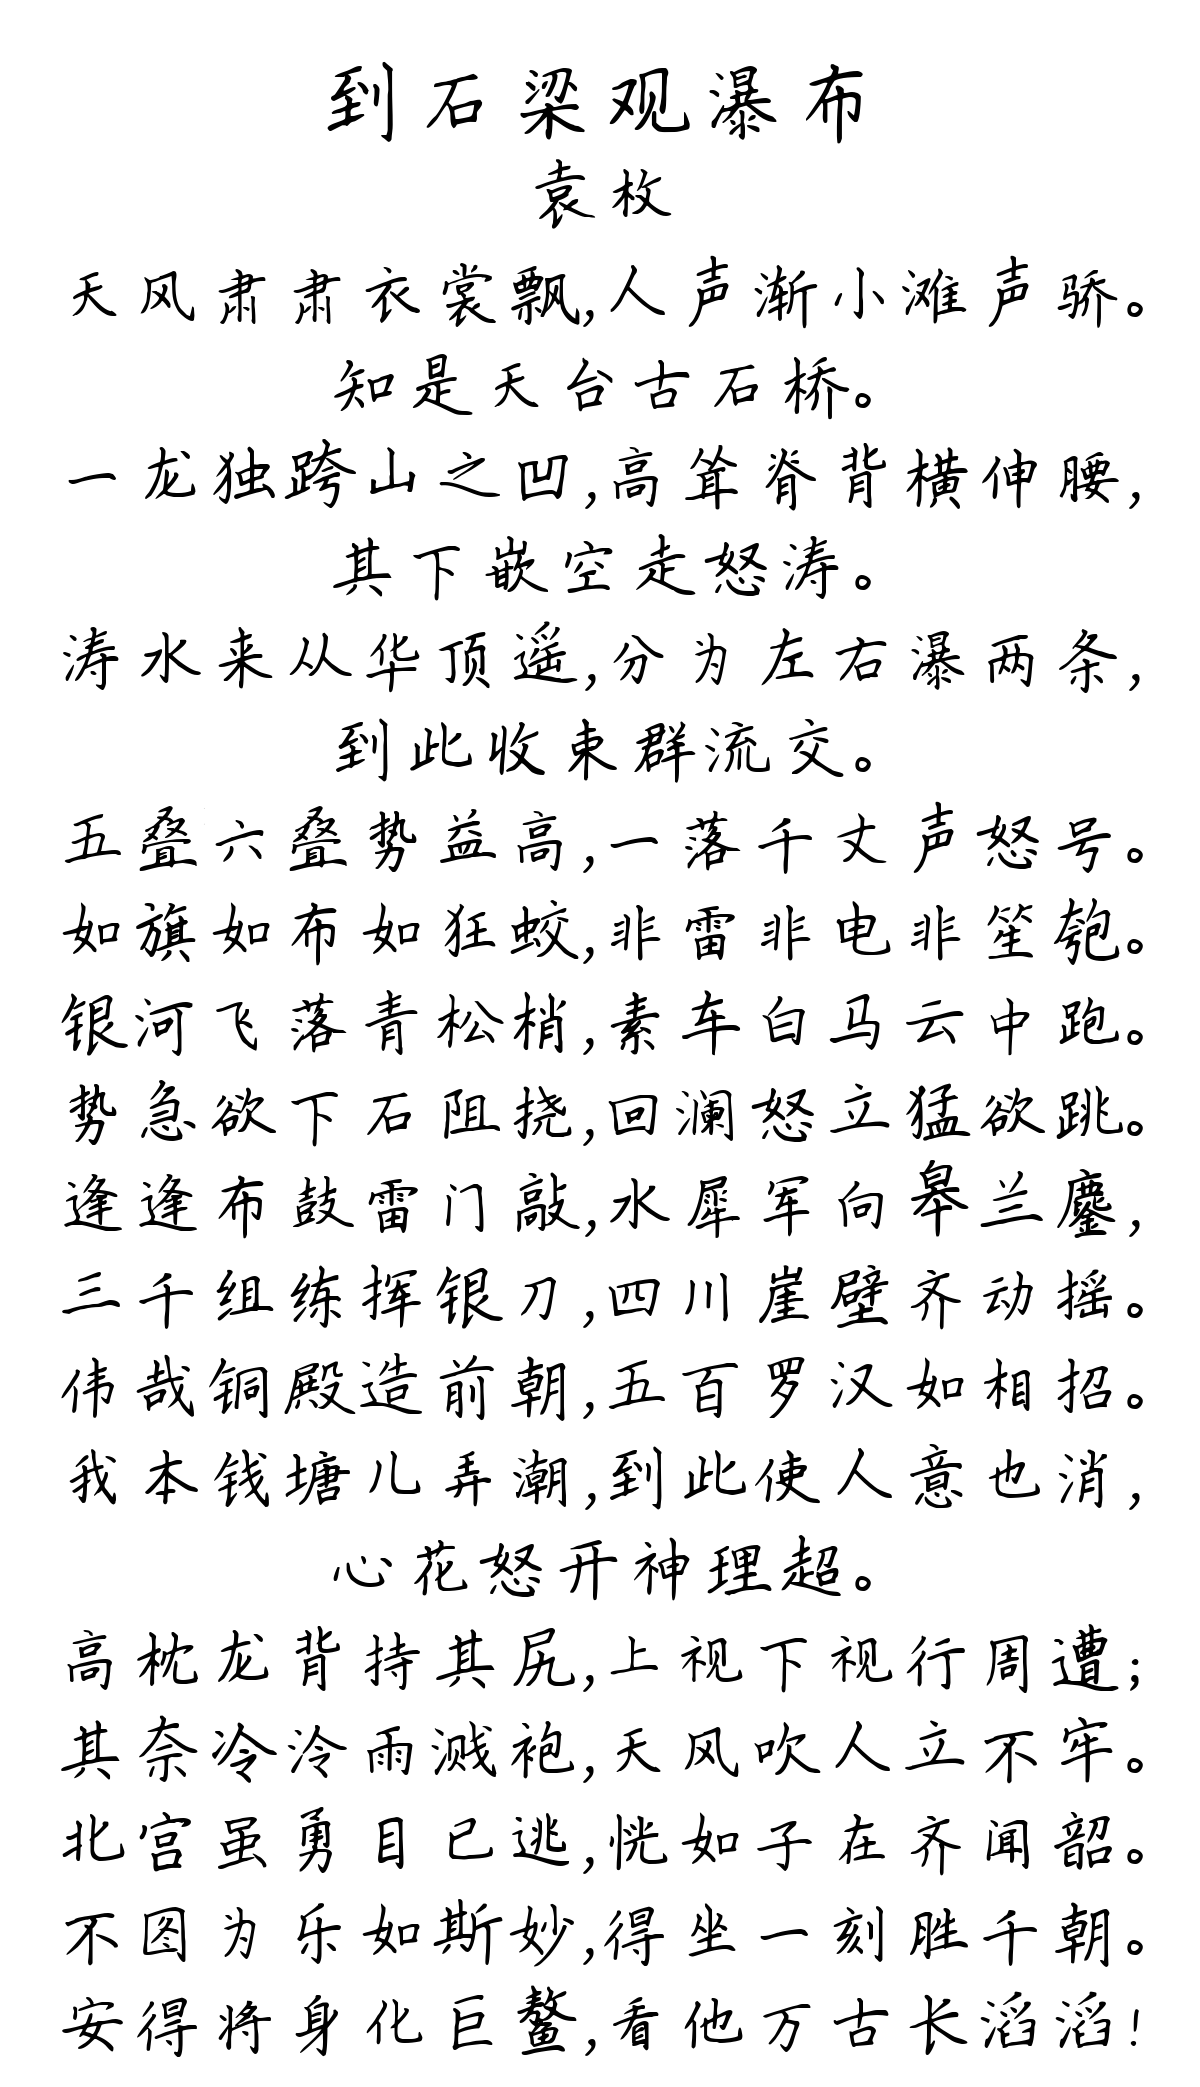 到石梁观瀑布
袁枚
天风肃肃衣裳飘,人声渐小滩声骄。
知是天台古石桥。
一龙独跨山之凹,高耸脊背横伸腰,
其下嵌空走怒涛。
涛水来从华顶遥,分为左右瀑两条,
到此收束群流交。
五叠六叠势益高,一落千丈声怒号。
如旗如布如狂蛟,非雷非电非笙匏。
银河飞落青松梢,素车白马云中跑。
势急欲下石阻挠,回澜怒立猛欲跳。
逢逢布鼓雷门敲,水犀军向皋兰鏖,
三千组练挥银刀,四川崖壁齐动摇。
伟哉铜殿造前朝,五百罗汉如相招。
我本钱塘儿弄潮,到此使人意也消,
心花怒开神理超。
高枕龙背持其尻,上视下视行周遭;
其奈冷泠雨溅袍,天风吹人立不牢。
北宫虽勇目已逃,恍如子在齐闻韶。
不图为乐如斯妙,得坐一刻胜千朝。
安得将身化巨鳌,看他万古长滔滔!